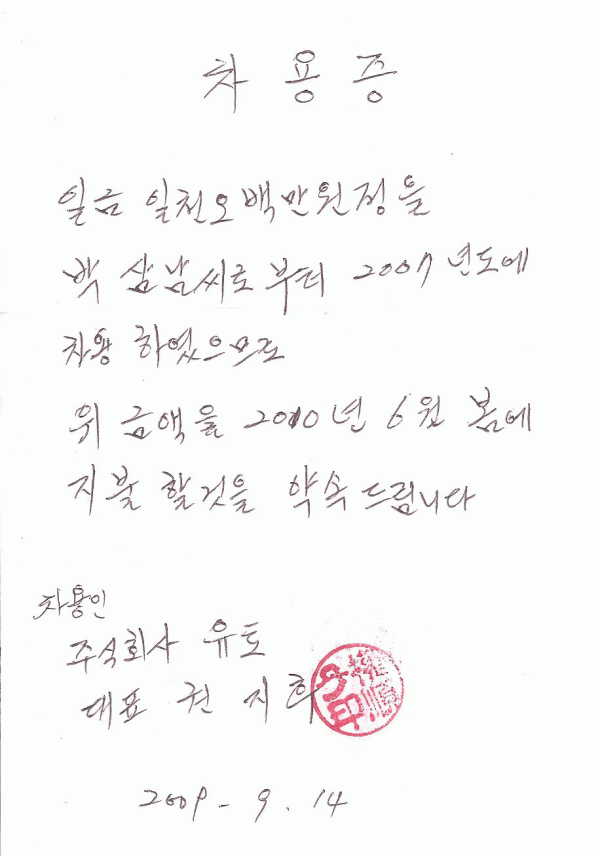 차용증
일금 일천오백만원정을
박 삼남씨로 부터 2007년도에
차용 하였으므로
위 금액을 2010년 6월 봄에
지불 할것을 약속드립니다
차용인
주식회사 유토
대표 권지희
2009 - 9 . 14